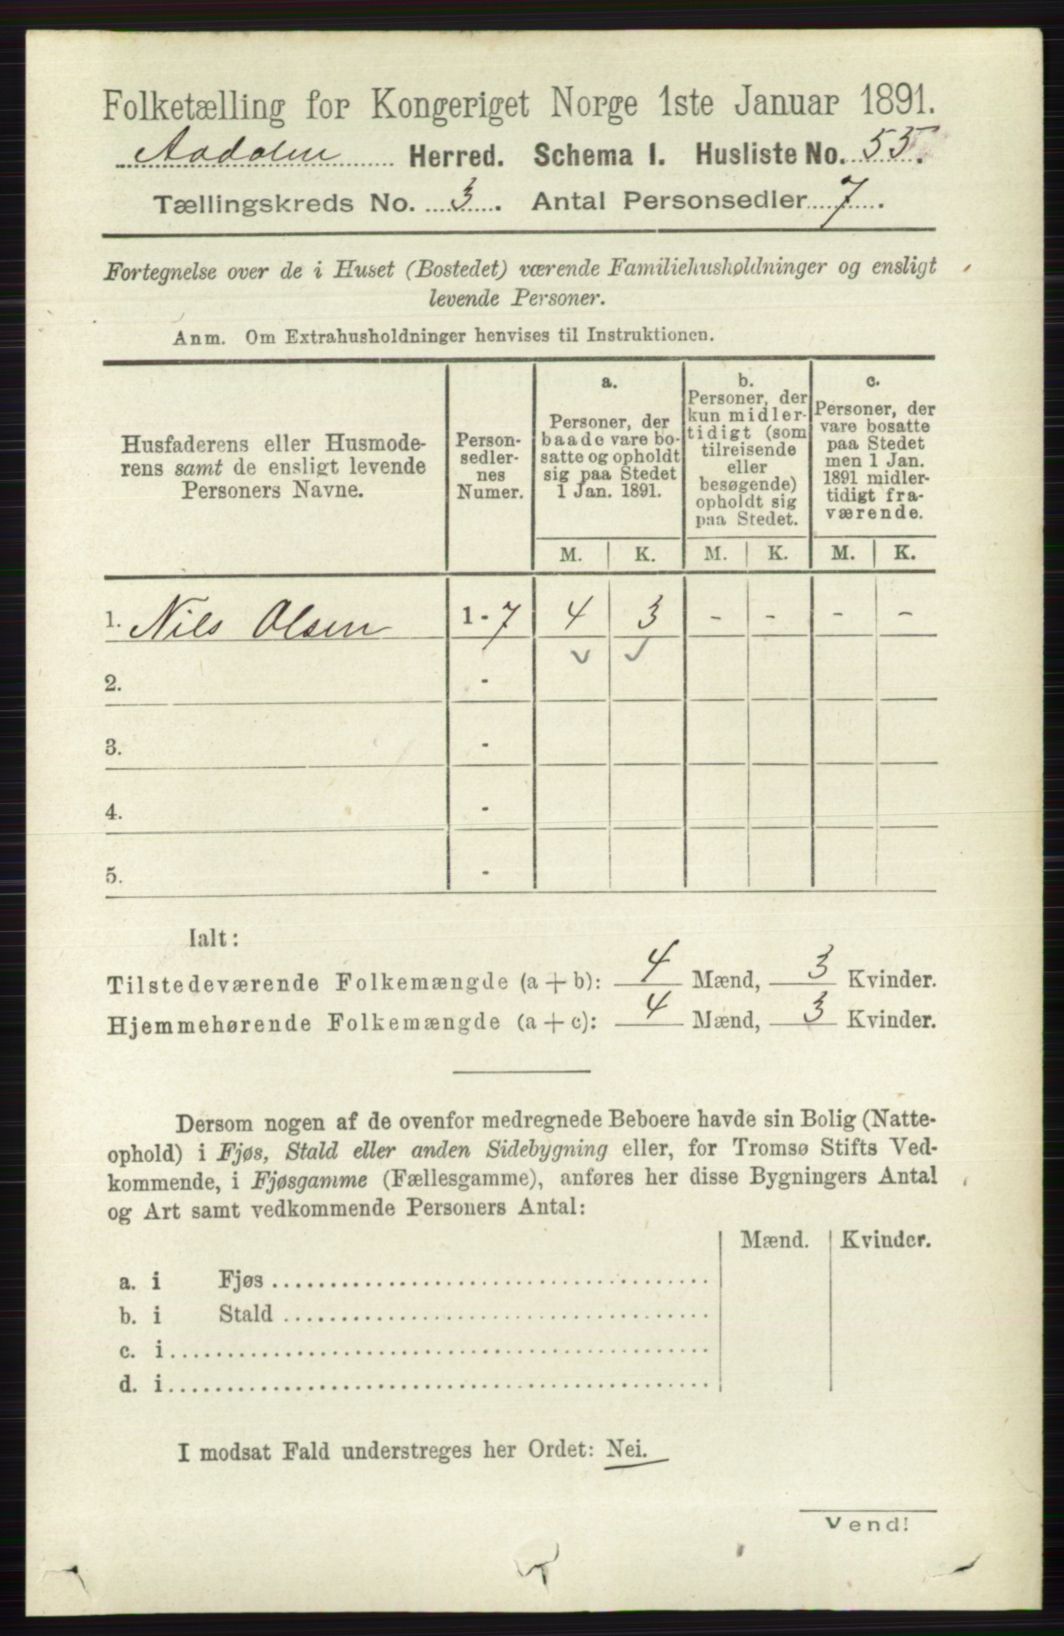 Folketælling for Kongeriget Norge 1ste Januar 1891.
Aadalen Herred. Schema I. Husliste No. 55.
Tællingskreds No. 3. Antal Personsedler 7.
Fortegnelse over de i Huset (Bostedet) værende Familiehusholdninger og ensligt
levende Personer.
Anm. Om Extrahusholdninger henvises til Instruktionen.
Husfaderens eller Husmode-
rens samt de ensligt levende
Personers Navne.
Person-
sedler-
nes
Numer.
a.
Personer, der
baade vare bo-
satte og opholdt
sig paa Stedet
1 Jan. 1891.
b.
Personer, der
kun midler-
tidigt (som
tilreisende
eller
besøgende)
opholdt sig
paa Stedet.
c.
Personer, der
vare bosatte
paa Stedet
men 1 Jan.
1891 midler-
tidigt fra-
værende.
M. K. M. K. M. K.
1. Nils Olsen 1 - 7 4 3 - - - -
2. -
3. -
4. -
5. -
Ialt:
Tilstedeværende Folkemængde (a + b): 4 Mænd, 3 Kvinder.
Hjemmehørende Folkemængde (a + c): 4 Mænd, 3 Kvinder.
Dersom nogen af de ovenfor medregnede Beboere havde sin Bolig (Natte-
ophold) i Fjøs, Stald eller anden Sidebygning eller, for Tromsø Stifts Ved-
kommende, i Fjøsgamme (Fællesgamme), anføres her disse Bygningers Antal
og Art samt vedkommende Personers Antal:
Mænd. Kvinder.
a. i Fjøs
b. i Stald
c. i
d. i
I modsat Fald understreges her Ordet: Nei.
Vend!